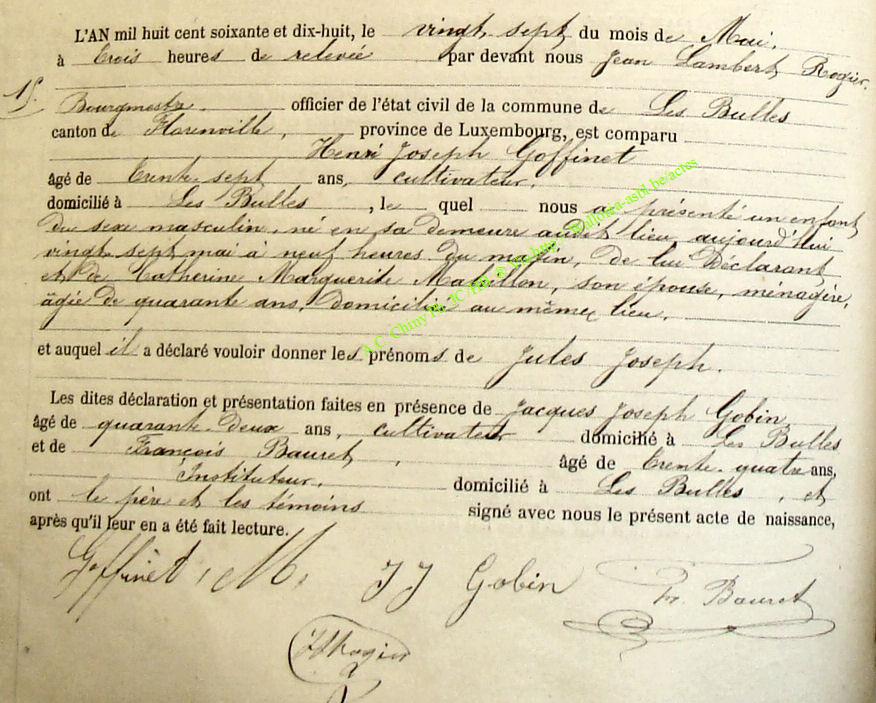 L'AN mil huit cent soixante et dix-huit, le vingt sept du mois de Mai,
à trois heures de relevée par devant nous Jean Lambert Rogier,
15.
Bourgmestre officier de l'état civil de la commune de Les Bulles
canton de Florenville, province de Luxembourg, est comparu
Henri Joseph Goffinet
âgé de trente sept ans, cultivateur,
domicilié à Les Bulles, lequel nous a présenté un enfant
du sexe masculin, né en sa demeure audit lieu aujourd'hui
vingt sept mai à neuf heures du matin, de lui Déclarant
et de Catherine Marguerite Mabillon, son épouse, ménagère,
âgée de quarante ans, domiciliée au même lieu,
et auquel il a déclaré vouloir donner les prénoms de Jules Joseph.
Les dites déclaration et présentation faites en présence de Jacques Joseph Gobin
âgé de quarante deux ans, cultivateur domicilié à Les Bulles
et de François Bauret, âgé de trente quatre ans,
Instituteur, domicilié à Les Bulles, et
ont le père et les témoins signé avec nous le présent acte de naissance,
après qu'il leur en a été fait lecture.
Goffinet, M, J J Gobin Fr. Bauret
Rogier